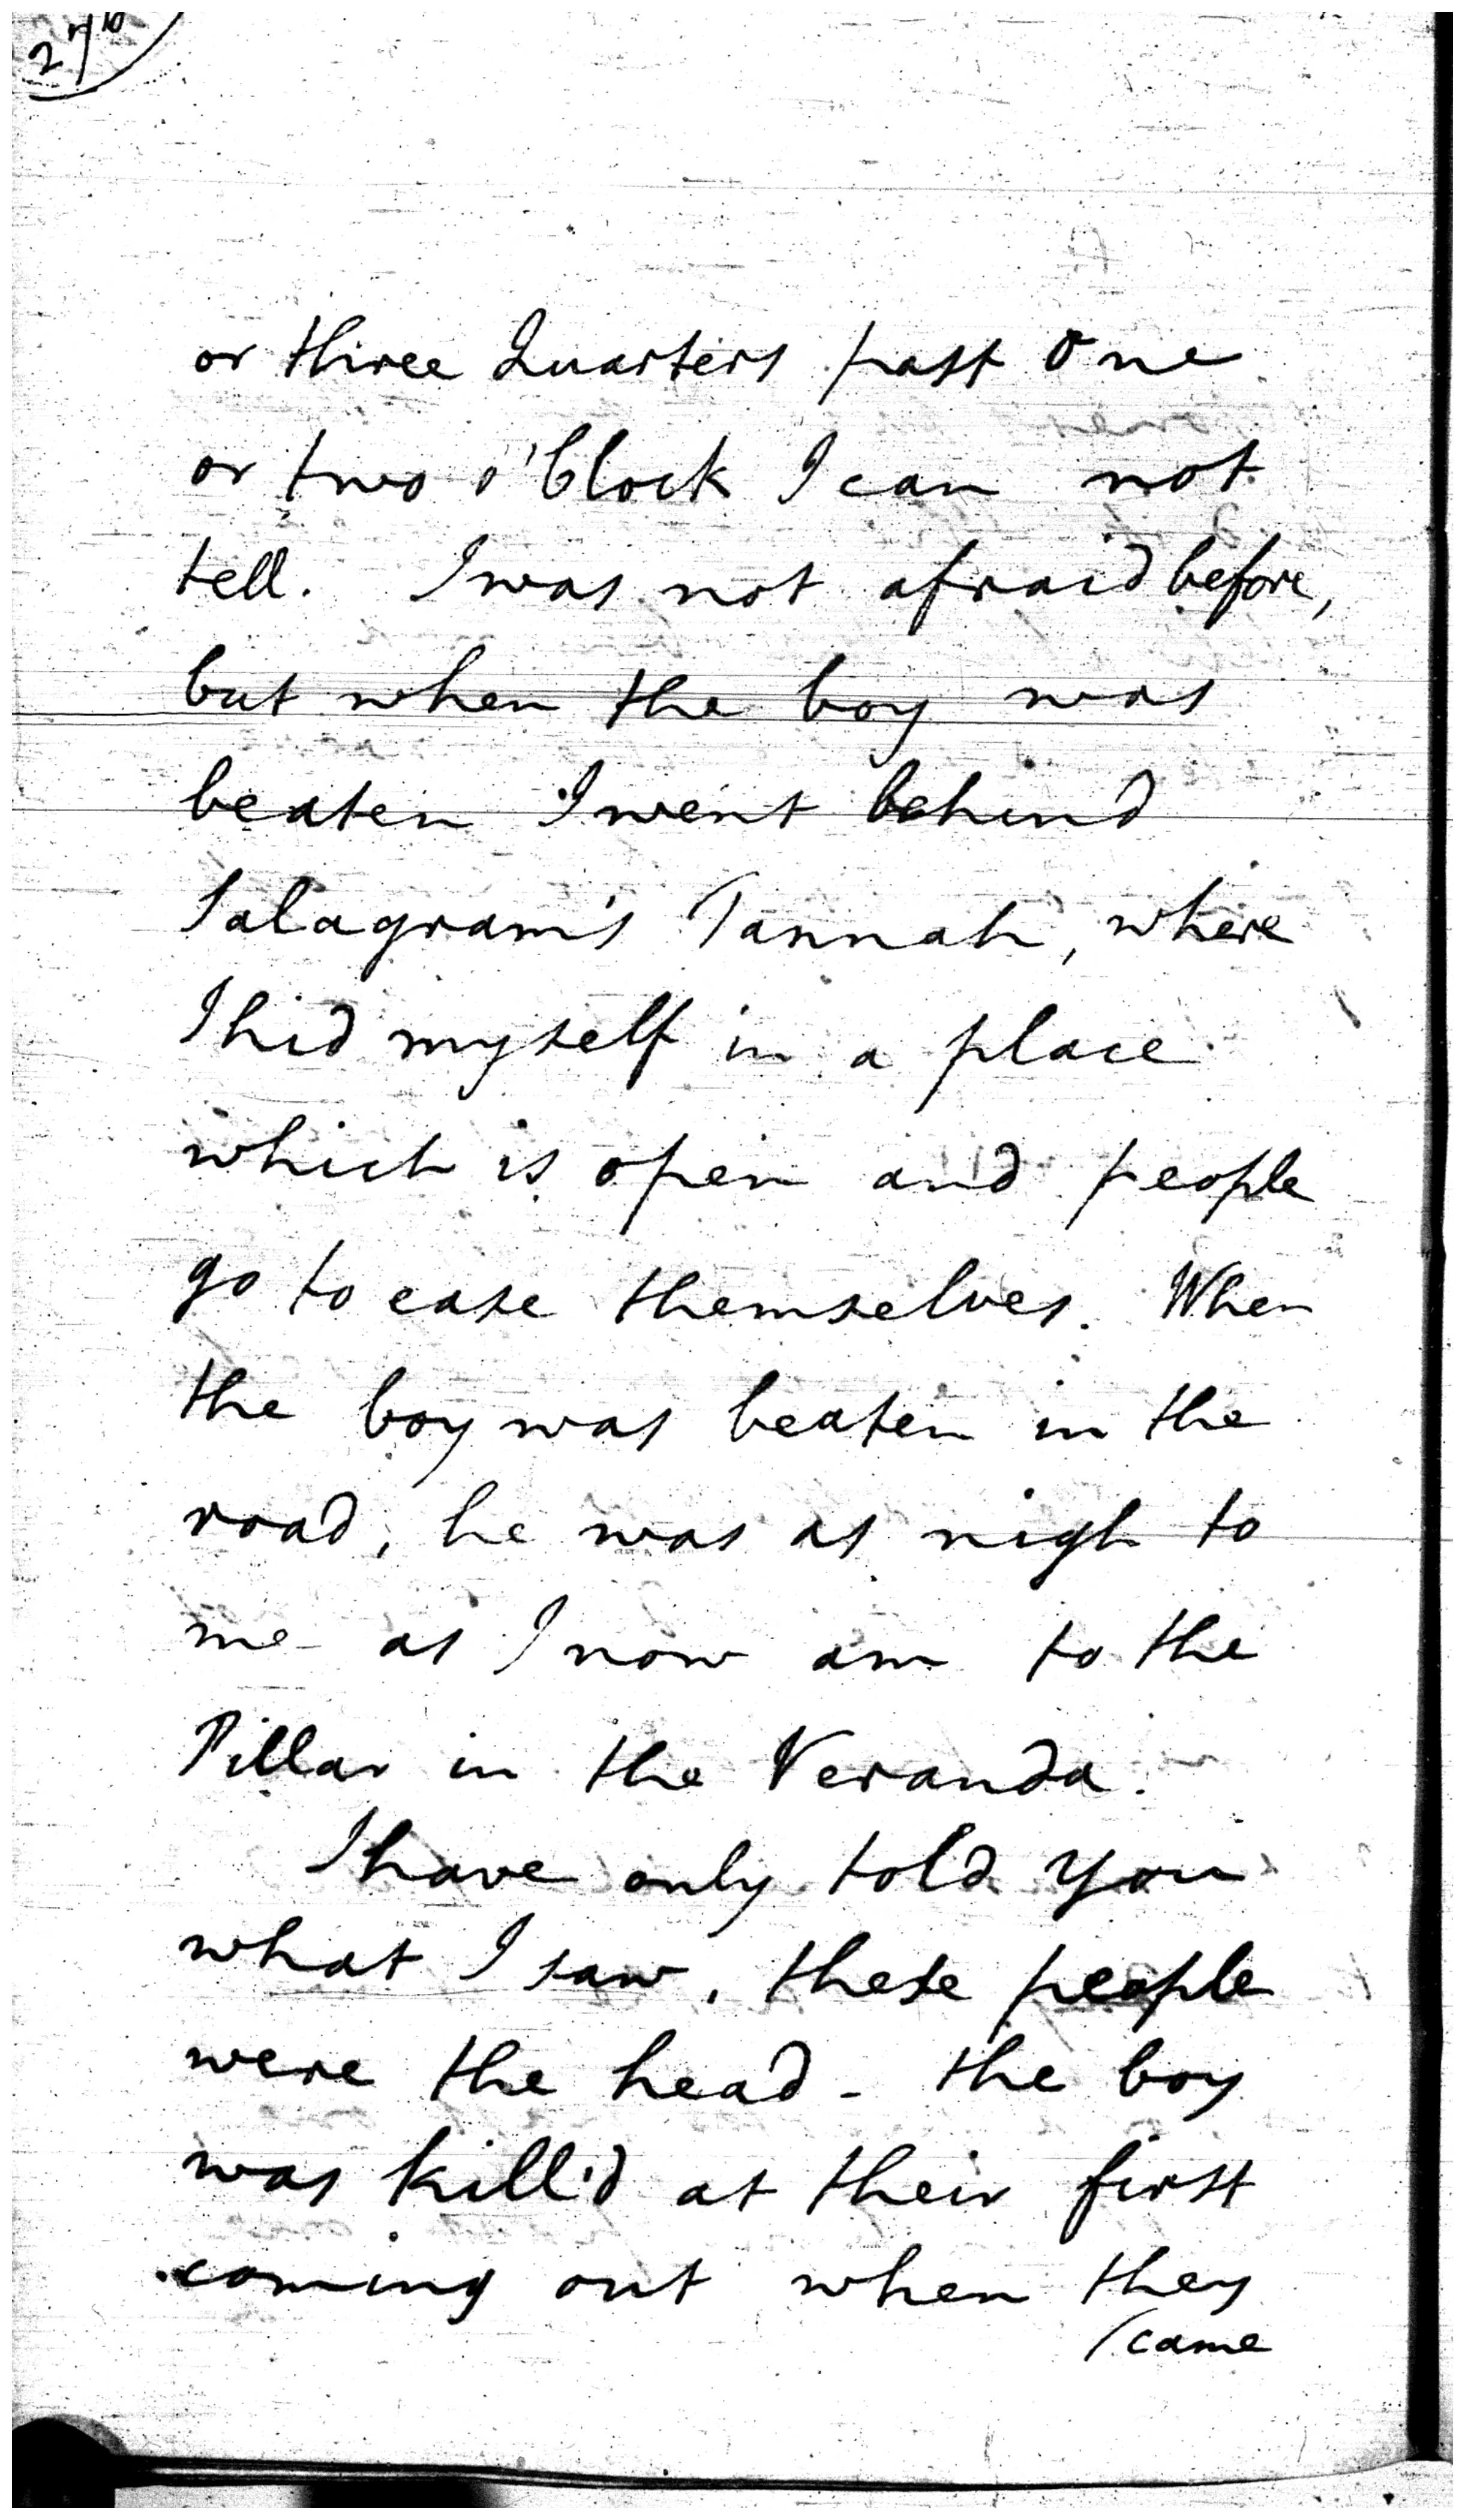 or three Quarters past One
or two o'Clock I can not
tell. I was not afraid before,
but when the boy was
beaten I went behind
Salagram's Tannah, where
I hid myself in a place
which is open and people
go to ease themselves. When
the boy was beaten in the
road, he was as nigh to
me as I now am to the
Pillar in the Veranda.
I have only told you
what I saw, these people
were the head - the boy
was kill'd at their first
coming out when they
(came